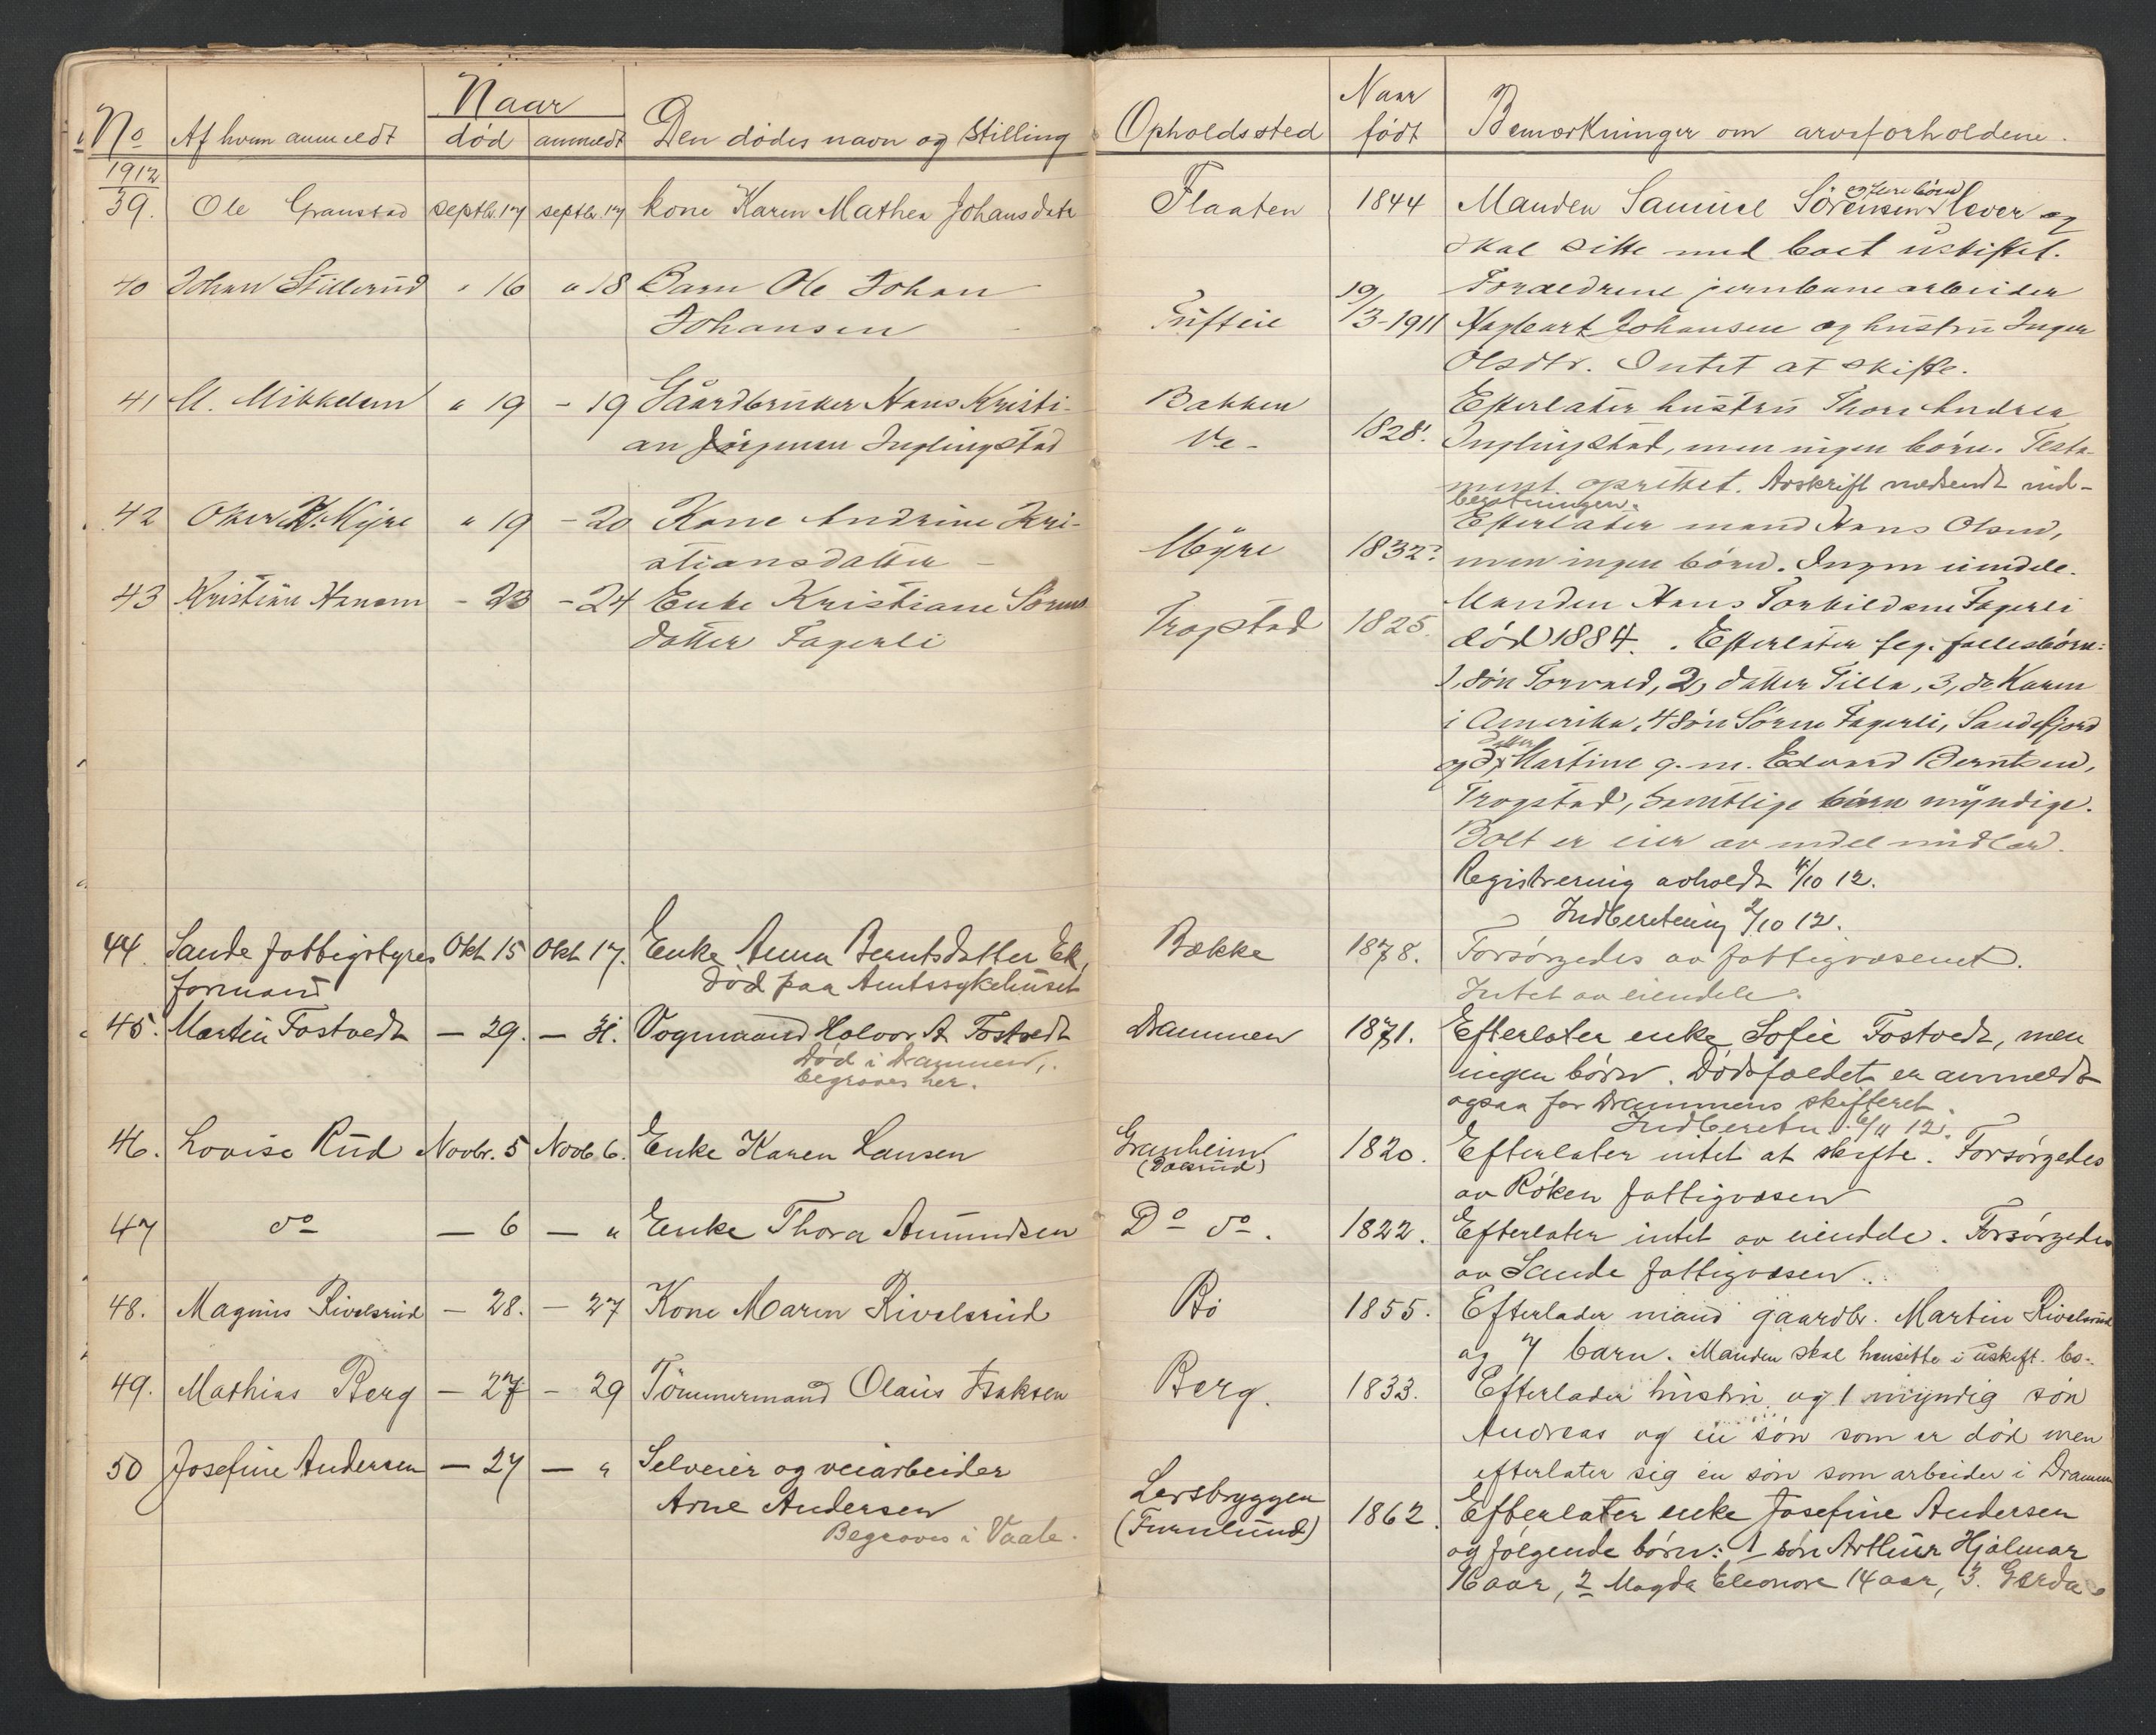 No | Af hvem anmeldt | Naar død | anmeldt | Den dødes navn og Stilling | Opholdssted | Naar født | Bemærkninger om arveforholdene.
1912
39. Ole Granstad | septbr. 17 | septbr. 17 | kone Karen Mathea Johansdatr | Flaaten | 1844 | Manden Samuel Sörensen og flere börn lever og
skal sitte med boet uskiftet.
40 Johan Stillerud | " 16 | " 18 | Barn Ole Johan
Johansen | Tufteie | 19/3-1911 | Forældrene jernbanearbeider
Hagbart Johansen og hustru Inger
Olsdtr. Intet at skifte.
41 M. Mikkelsen | " 19 | - 19 | Gaardbruker Hans Kristi-
an Jörgensen Inglingstad | Bakken
Ve- | 1828. | Efterlater hustru Thore Andrea
Inglingstad, men ingen börn. Testa-
ment oprettet. Avskrift medsendt ind-
beretningen.
42 H. Myre | " 19 | - 20 | Kone Andrine Kri-
stiansdatter | Myre | 1832. | Efterlater mand Hans Olsen,
men ingen börn. Ingen eiendele.
43 Kristian Hansen | - 23 | - 24 | Enke Kristiane Sörens
datter Fagerli | Trogstad | 1825. | Manden Hans Torkildsen Fagerli
död 1884. Efterlater flg. fællesbörn:
1, sön Torvald, 2, datter Tilla, 3, do Karen
i Amerika, 4 sön Sören Fagerli, Sandefjord
og 5, datter Martine g. m. Edvard Berntsen,
Trogstad, samtlige börn myndige.
Boet er eier av endel midler.
Registrering avholdt 4/10 12.
Indberetning 9/10 12.
44. Sande fattigstyres
formand | Okt. 15 | Okt. 17. | Enke Anna Berntsdatter Ek,
Död paa Amtssykehuset | Bække | 1878. | Forsörgedes av fattigvæsenet.
Intet av eiendele.
45. Martin Tostvedt | - 29. | - 31. | Vognmand Halvor A. Tostvedt
Död i Drammen,
begraves her. | Drammen | 1871. | Efterlater enke Sofie Tostvedt, men
ingen börn. Dödsfaldet er anmeldt
ogsaa for Drammens skifteret.
Indberetn. 6/11 12.
46. Lovise Rud | Novbr. 5 | Novb. 6. | Enke Karen Hansen | Granheim
(Dalsrud) | 1820. | Efterlater intet at skifte. Forsörgedes
av Röken fattigvæsen
47 do | - 6 | - " | Enke Thora Amundsen | Do do. | 1822. | Efterlater intet av eiendele. Forsörgedes
av Sande fattigvæsen.
48. Magnus Rivelsrud | - 28. | - 27 | Kone Maren Rivelsrud | Bö | 1855. | Efterlader mand gaardbr. Martin Rivelsrud
og 7 barn. Manden skal hensitte i uskift. bo.
49. Mathias Berg | - 27 | - 29 | Tömmermand Olaus Isaksen | Berg. | 1833. | Efterlader hustru og 1 myndig sön
Andreas og en sön som er död men
efterlater sig en sön som arbeider i Dramm
50 Josefine Andersen | - 27 | - " | Selveier og veiarbeider
Arne Andersen
Begraves i Vaale. | Lersbryggen
(Furulund) | 1862. | Efterlater enke Josefine Andersen
og fölgende börn: 1 sön Arthur Hjalmar
16 aar, 2 Magda Eleonore 14 aar, 3. Gerda